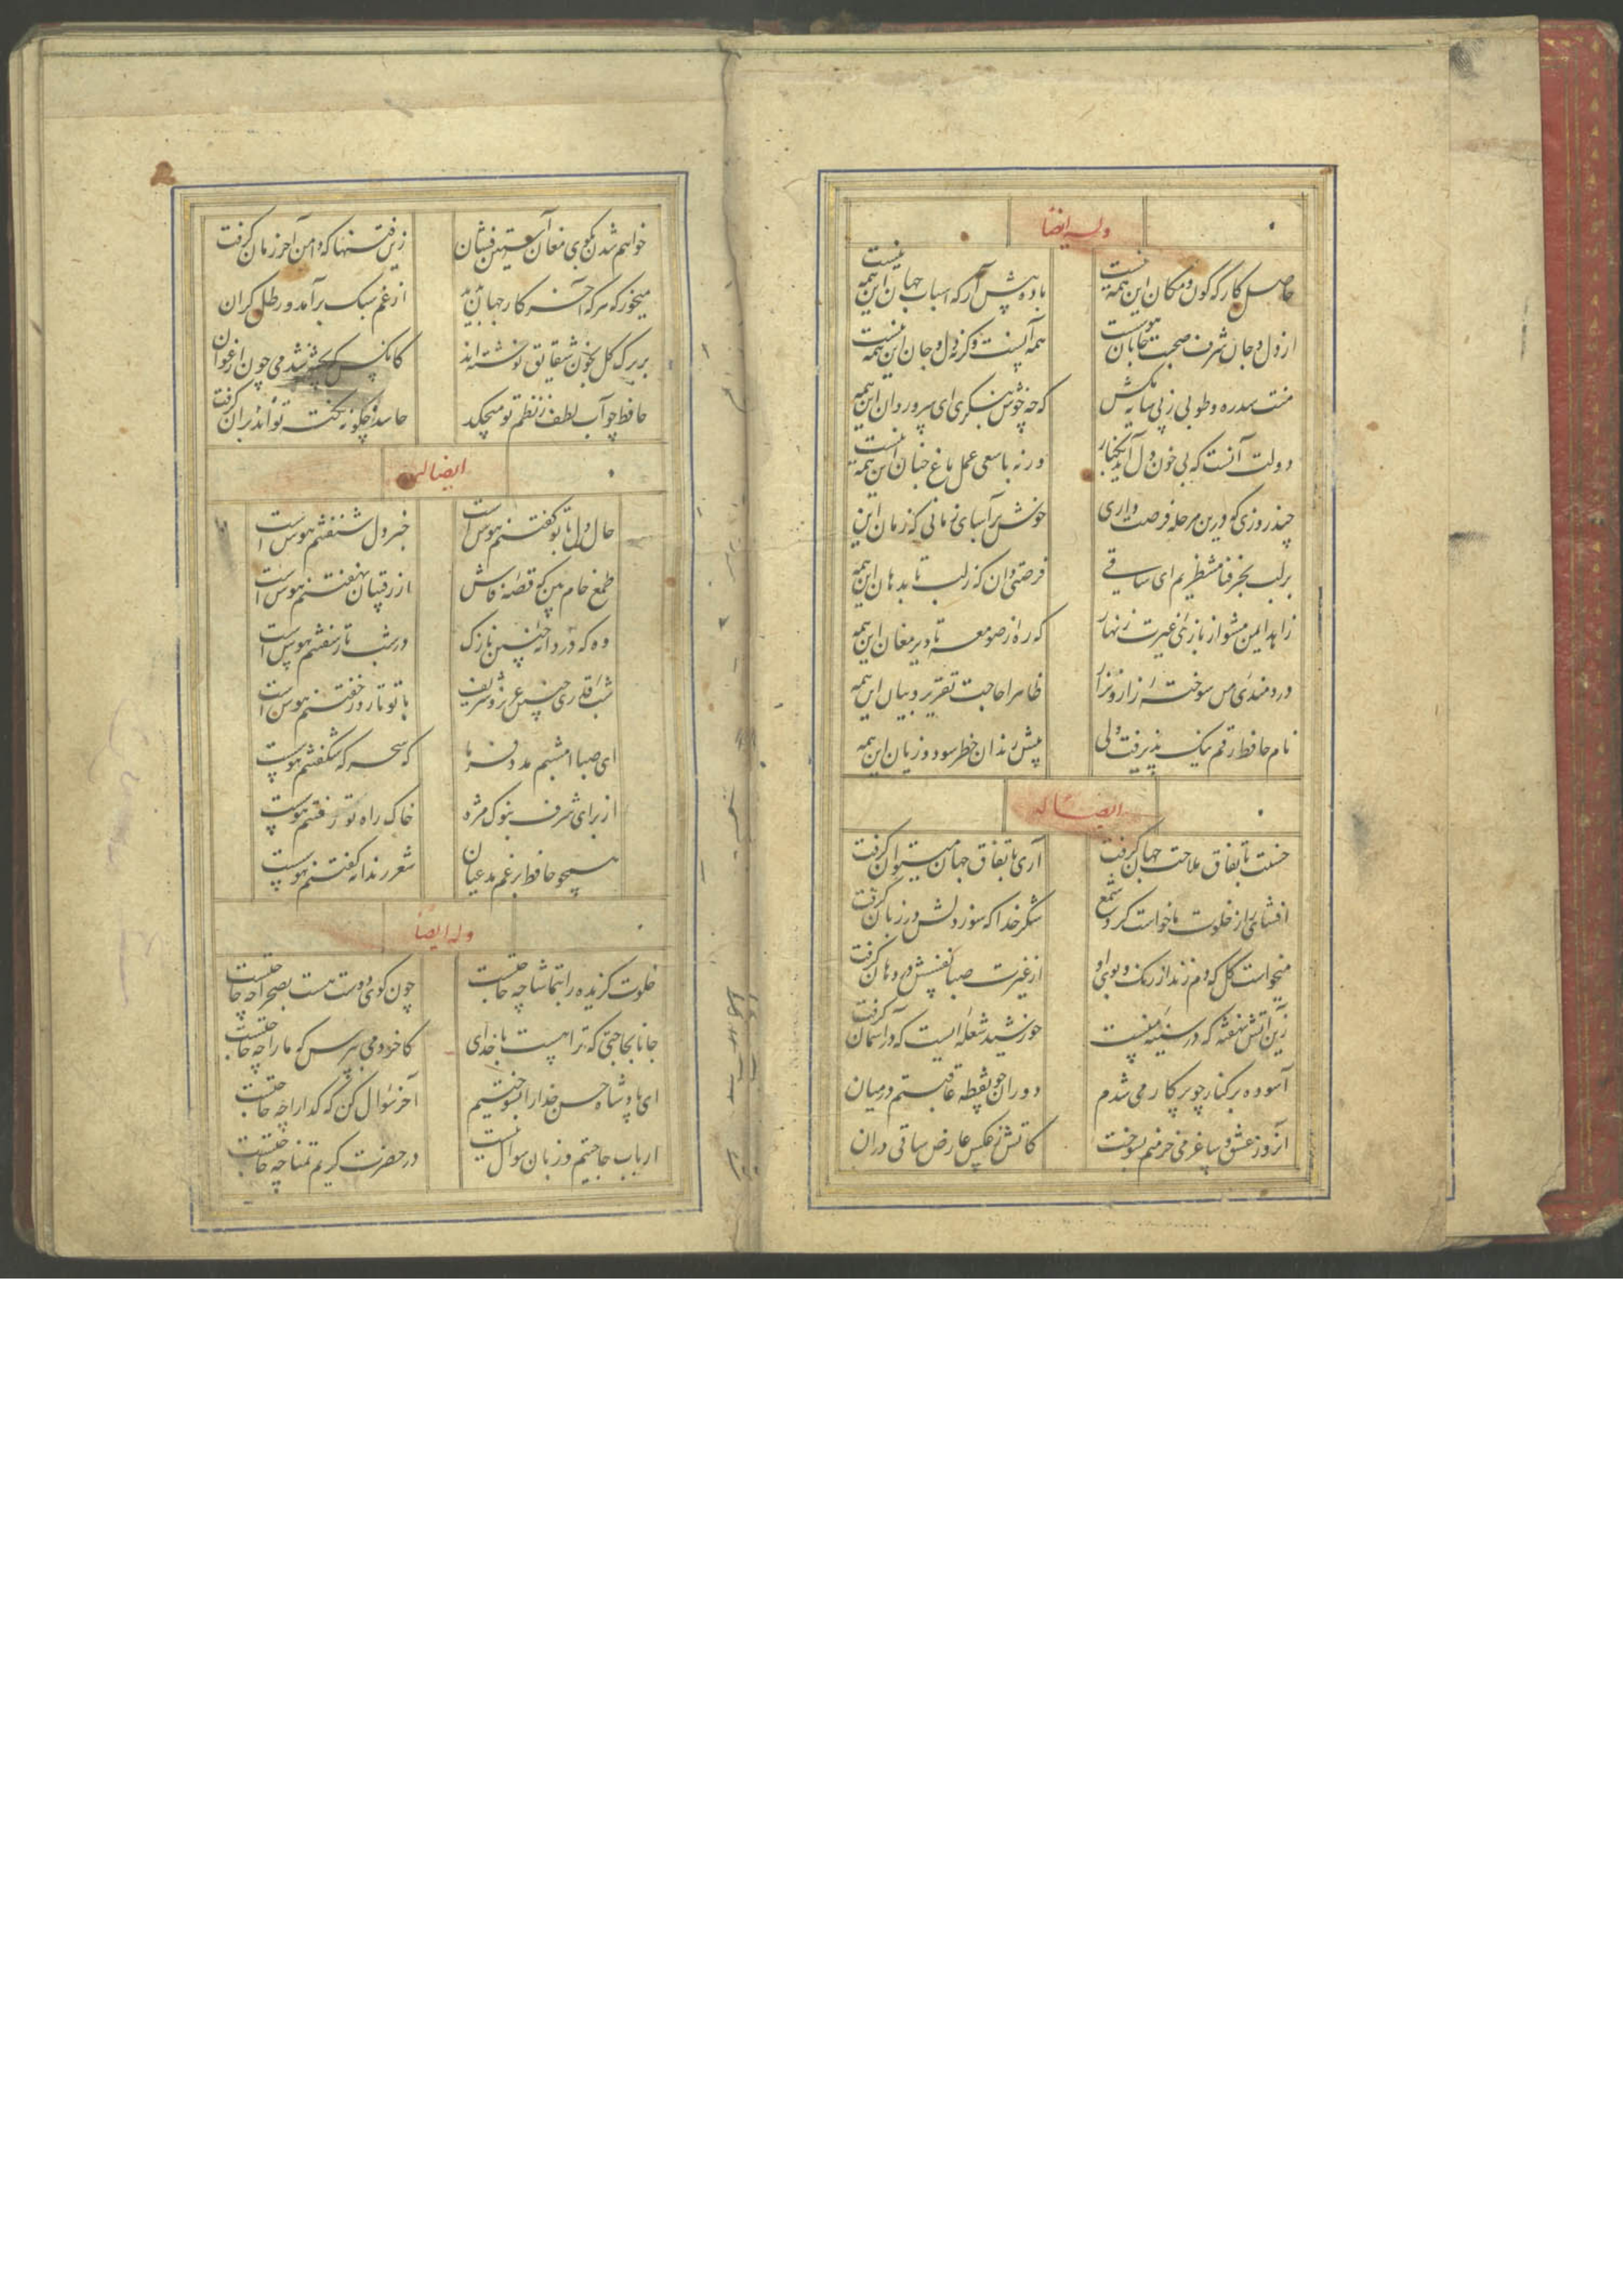 وله ایضا
حاصل کارگه کون و مکان این همه نیست باده پیش آر که اسباب جهان این همه نیست
از دل و جان شرف صحبت جانان هوست همه آنست وگرنه دل و جان این همه نیست
منت سدره و طوبی ز پی سایه مکش که چو خوش بنگری ای سرو روان این همه
دولت آنست که بی خون دل آید بکنار ورنه با سعی عمل باغ جنان این همه نیست
چند روزی که درین مرحله فرصت داری خوش برآسای زمانی که زمان این
بر لب بحر فنا منتظریم ای ساقی فرصتی دان که ز لب تا بدهان این همه
زاهد ایمن مشو از بازی غیرت زنهار که ره از صومعه تا دیر مغان این همه
دردمندی من سوخته زار و نزار ظاهرا حاجت تقریر و بیان این همه
نام حافظ رقم نیک پذیرفت ولی پیش رندان خطر سود و زیان این همه
ایضا له
حسنت باتفاق ملاحت جهان گرفت آری باتفاق جهان میتوان گرفت
افشای راز خلوت ما خواست کرد شمع شکر خدا که سوز دلش در زبان گرفت
میخواست گل که دم زند از رنگ و بوی او از غیرت صبا نفسش در دهان گرفت
زین آتش نهفته که در سینه منست خورشید شعله ایست که در آسمان گرفت
آسوده بر کنار چو پرکار می شدم دوران چو نقطه عاقبتم در میان
آنروز عشق ساغر می خرمنم بسوخت کاتش ز عکس عارض ساقی در آن
خواهم شدن بکوی مغان آستین فشان زین فتنها که دامن آخر زمان گرفت
میخور که هر که آخر کار جهان بدید از غم سبک برآمد و رطل گران
بر برگ گل بخون شقایق نوشته اند کانکس که پخته شد می چون ارغوان
حافظ چو آب لطف ز نظم تو میچکد حاسد چگونه نکته تواند بر آن گرفت
ایضا له
حال دل با تو گفتنم هوس است خبر دل شنفتنم هوس است
طمع خام بین که قصه فاش از رقیبان نهفتنم هوس است
وه که دردانه چنین نازک در شب تار سفتنم هوس است
شب قدری چنین عزیز و شریف با تو تا روز خفتنم هوس است
ای صبا امشبم مدد فرما که سحرگه شکفتنم هوست
از برای شرف بنوک مژه خاک راه تو رفتنم هوست
همچو حافظ برغم مدعیان شعر رندانه گفتنم هوست
وله ایضا
خلوت گزیده را بتماشا چه حاجتست چون کوی دوست هست بصحرا چه حاجتست
جانا بحاجتی که ترا هست با خدای کاخر دمی بپرس که ما را چه حاجتست
ای پادشاه حسن خدا را بسوختیم آخر سوال کن که گدا را چه حاجتست
ارباب حاجتیم و زبان سوال نیست در حضرت کریم تمنا چه حاجتست